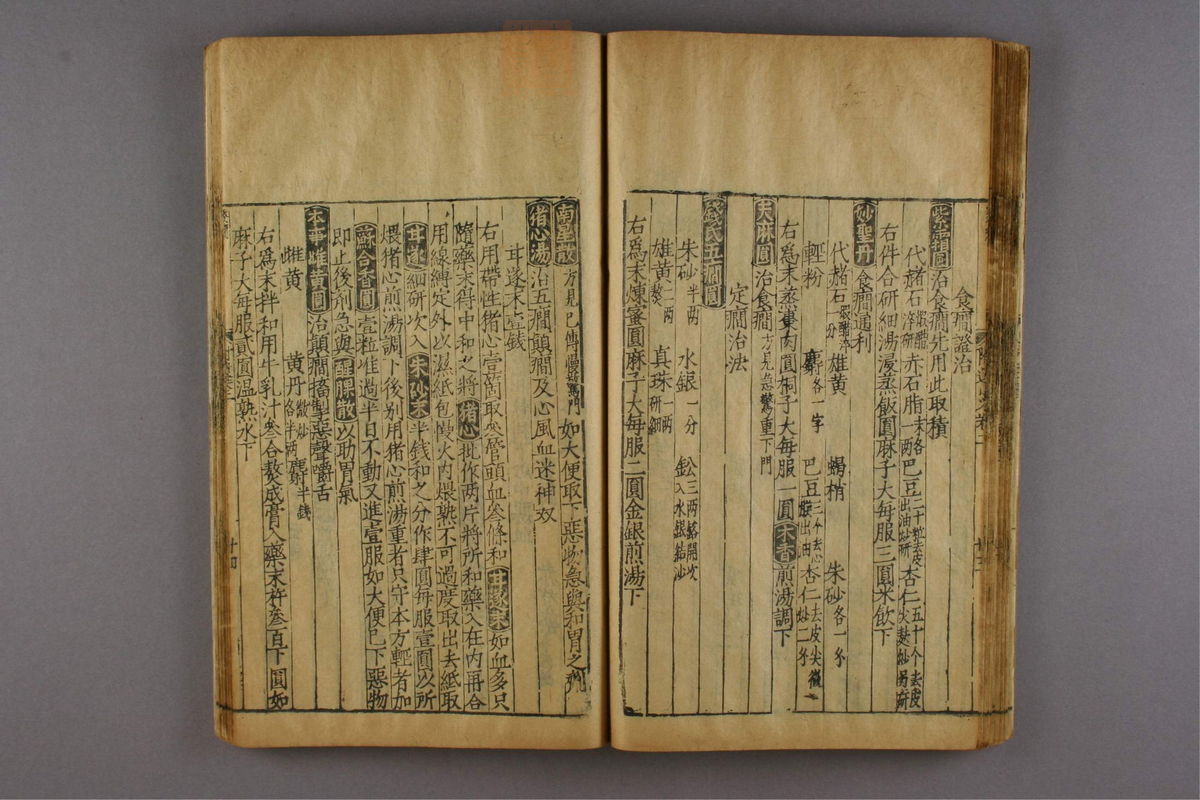 食癇證治
紫霜圓 治食癇先用此取積
代赭石煅醋淬研 赤石脂末各一兩 巴豆二十粒去皮出油炒研 杏仁五十个去皮尖麩炒另研
右件合研細湯浸蒸飯圓麻子大每服三圓米飲下
妙聖丹 食癇通利
代赭石煅醋淬一分 雄黃 蝎梢 朱砂各一分
輕粉 麝各一字 巴豆三个去心出油 杏仁去皮尖微炒二分
右爲末蒸棗肉圓桐子大每服一圓木香煎湯調下
天麻圓 治食癇方見急驚重下門
定癇治法
錢氏五癇圓
朱砂半兩 水銀一分 鈆三兩鎔開次入水銀結沙
雄黃一兩 真珠一兩研細
右爲末煉蜜圓麻子大每服二圓金銀煎湯下
南星散 方見已傳慢驚門 如大便取下惡物急與和胃之劑
猪心湯 治五癇顛癇及心風血迷神効
甘遂末壹錢
右用帶性猪心壹箇取叄管頭血叄條和甘遂末如血多只
隨藥末得中和之將猪心批作两片將所和藥入在内再合
用線縛定外以濕紙包慢火内煨熟不可過度取出去紙取
甘遂細研次入朱砂末半錢和之分作肆圓每服壹圓以所
煨猪心煎湯調下後别用猪心煎湯重者只守本方輕者加
蘇合香圓壹粒惟過半日不動又進壹服如大便已下惡物
即止後劑急與醒脾散以助胃氣
本事雌黃圓 治顛癇搐掣惡聲嚼舌
雌黃 黃丹微炒各半兩 麝半錢
右爲末拌和用牛乳汁叄合熬成膏入藥末杵叄百下圓如
麻子大每服貳圓温熟水下
廿四